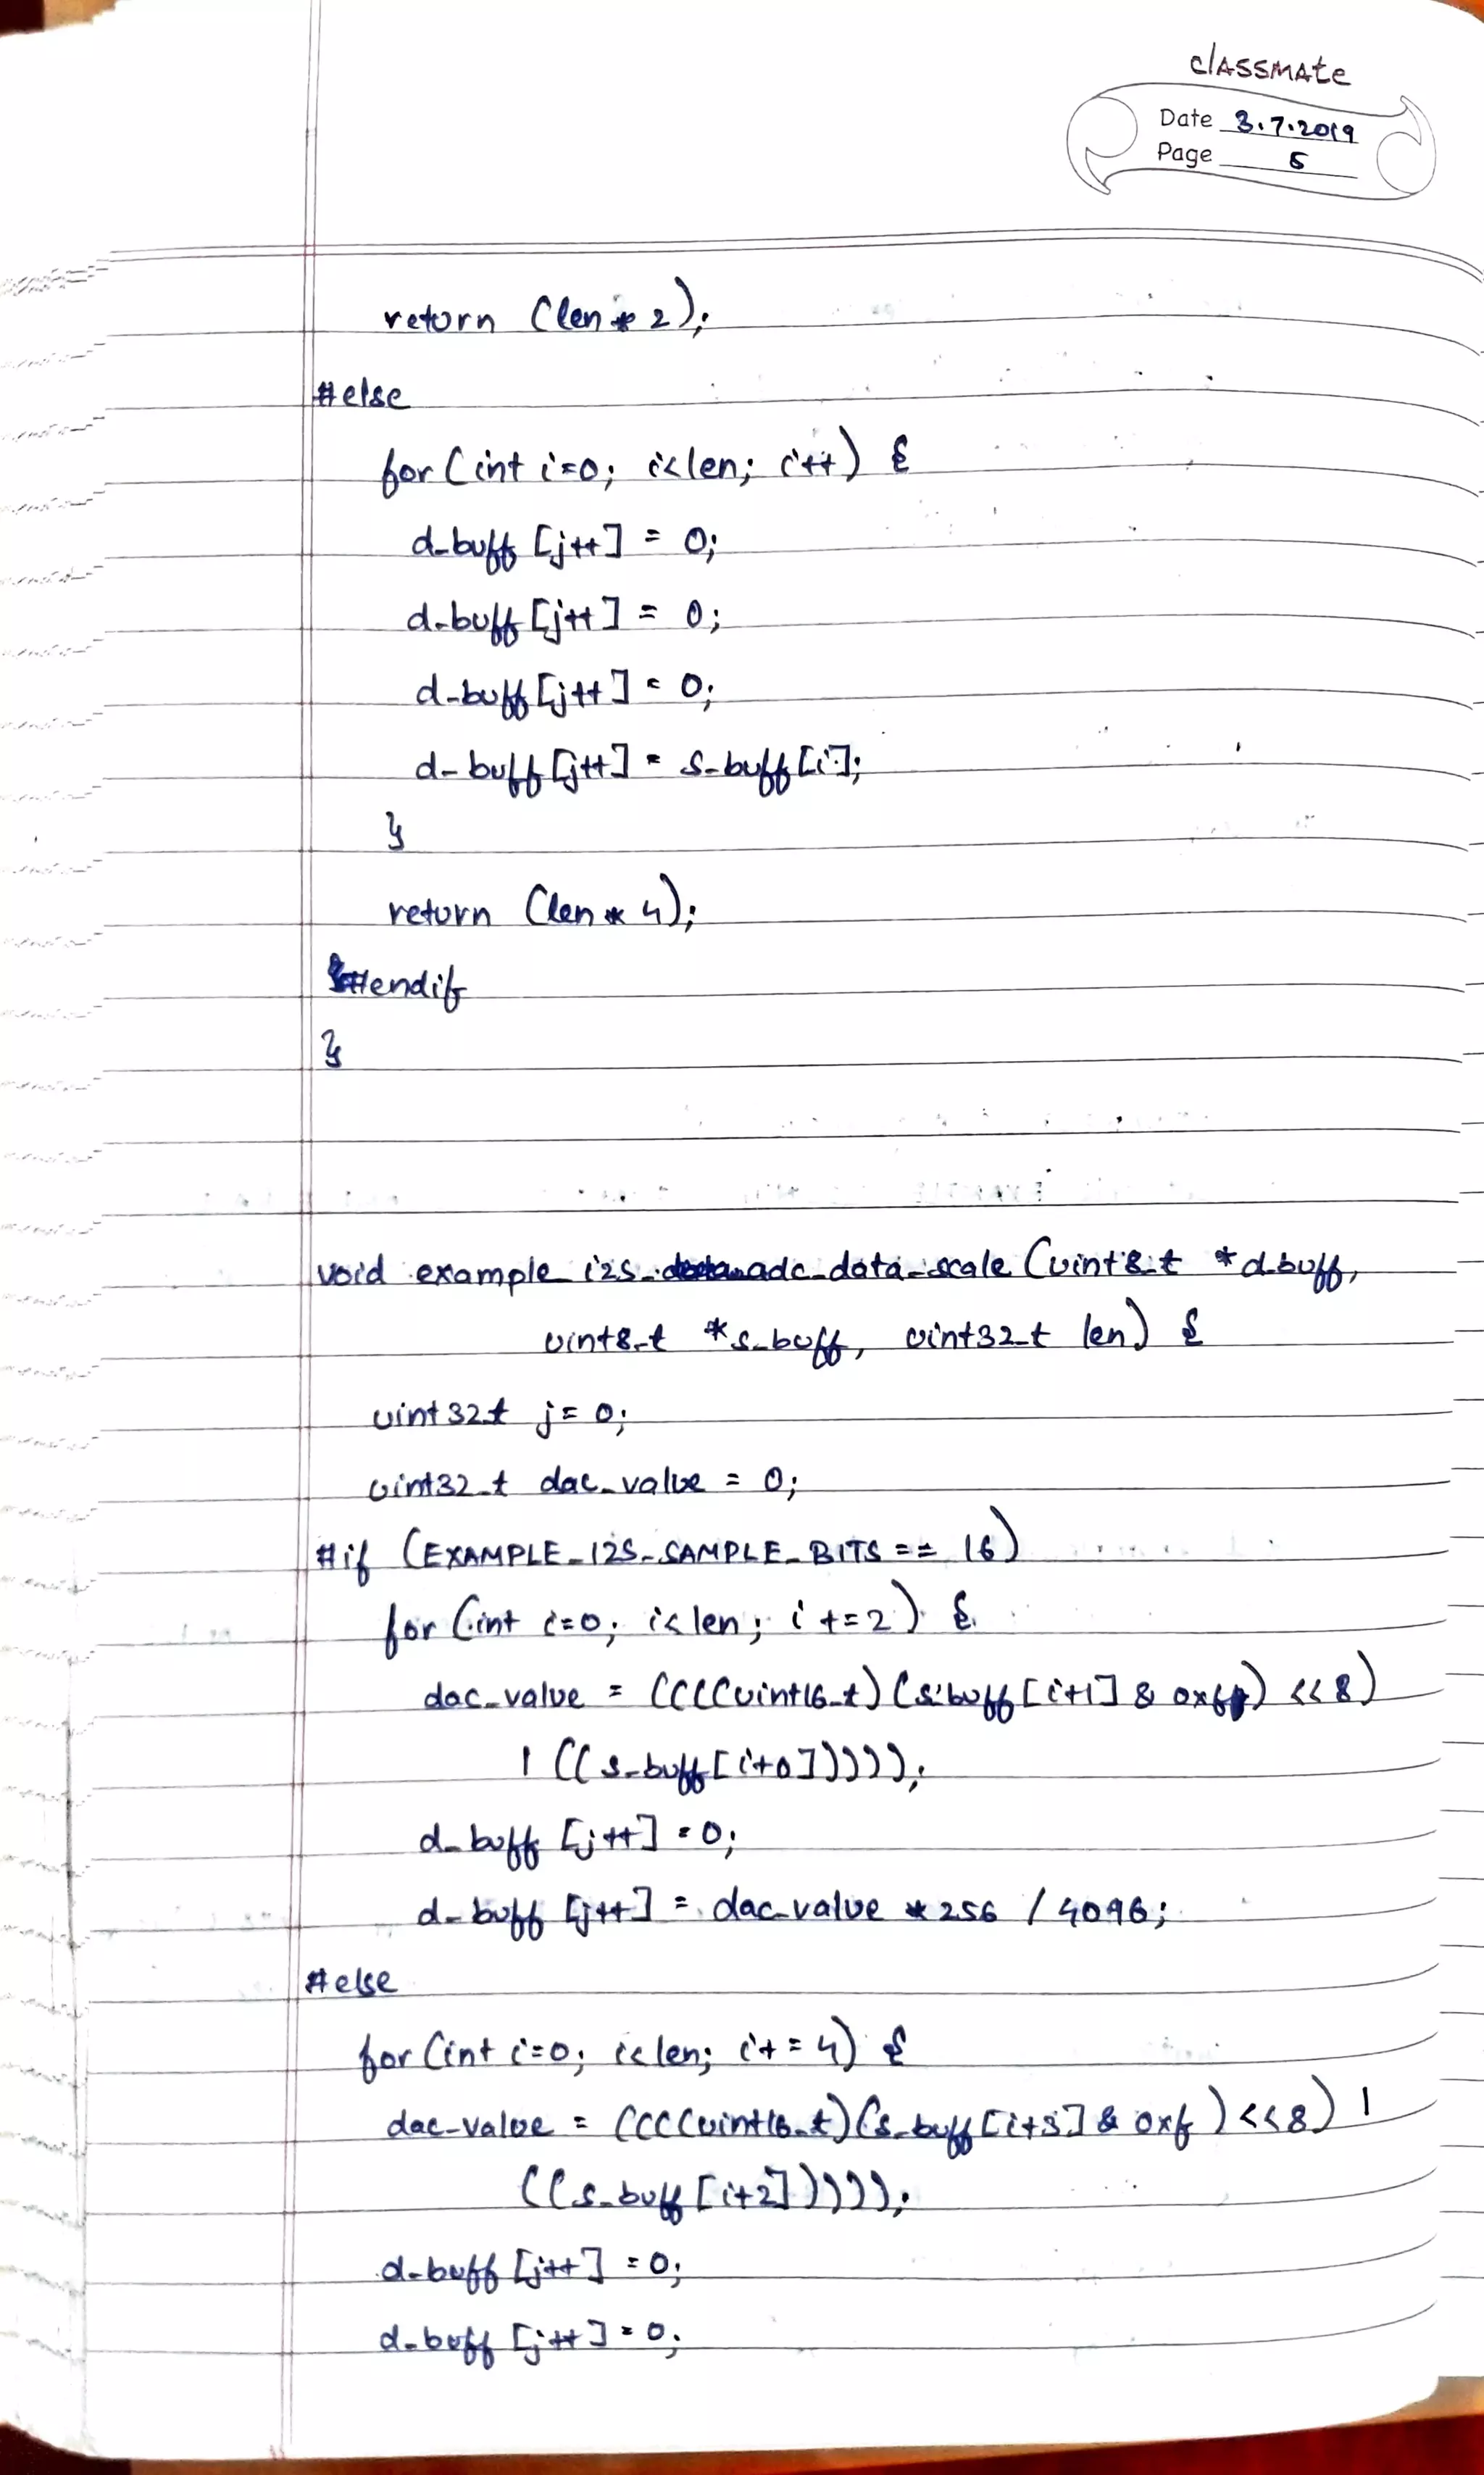 classmate
Date 3.7.2019
Page 5
return (len * 2);
#else
for (int i=0; i<len; i++) {
d_buff [j++] = 0;
d_buff [j++] = 0;
d_buff [j++] = 0;
d_buff [j++] = s_buff [i];
}
return (len * 4);
#endif
}
void example_i2s_adc_data_scale (uint8_t *d_buff,
uint8_t *s_buff, uint32_t len) {
uint32_t j = 0;
uint32_t dac_value = 0;
#if (EXAMPLE_I2S_SAMPLE_BITS == 16)
for (int i=0; i<len; i+=2) {
dac_value = ((((uint16_t) (s_buff [i+1] & 0xf) << 8)
| ((s_buff [i+0]))));
d_buff [j++] = 0;
d_buff [j++] = dac_value * 256 / 4096;
#else
for (int i=0; i<len; i+=4) {
dac_value = ((((uint16_t) (s_buff [i+3] & 0xf) <<8) |
((s_buff [i+2]))));
d_buff [j++] = 0;
d_buff [j++] = 0;